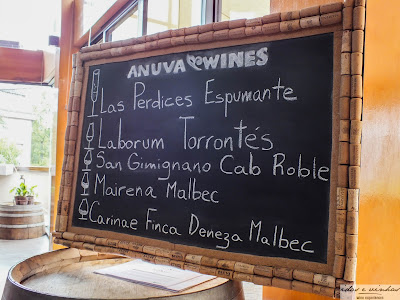 ANUVA WINES
Las Perdices Espumante
Laborum Torrontés
San Gimignano Cab Roble
Mairena Malbec
Carinae Finca Deneza Malbec